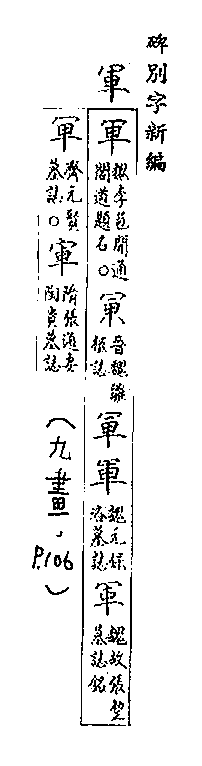 碑別字新編
軍
軍 魏李苞開通閣道題石○軍 晉魏雛柩誌 軍 軍 魏元妌洛墓誌 軍 魏故張墓誌銘
軍 齊元賢墓誌○軍 隋張濬妻閻貴墓誌
（九畫，P.106）